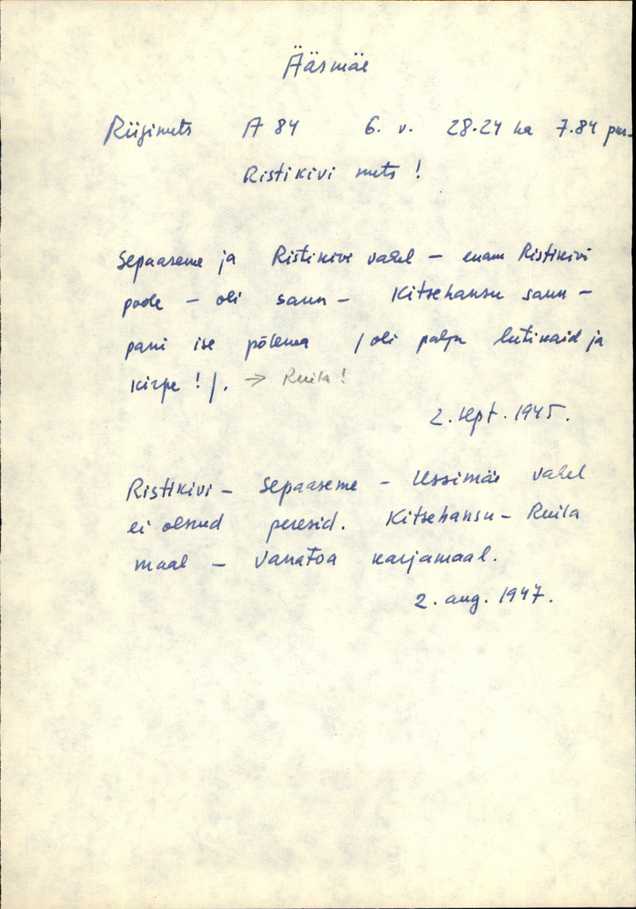 Äärmäe
Riigimets A 84 6. v. 28.24 ha 7.84
Ristikivi mets !
Sepaaseme ja Ristikivi vahel – enam Ristikivi
poole – oli saun – Kitsehansu saun –
pani ise põlema / oli palju lutikaid ja
kirpe ! /. → Ruila !
2. sept. 1945.
Ristikivi – Sepaaseme – Ussimäe vahel
ei olnud peresid. Kitsehansu – Ruila
maal – Vanatoa karjamaal.
2. aug. 1947.